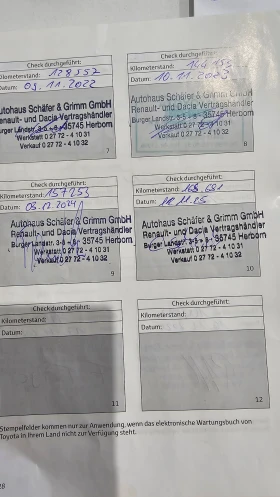 Check durchgeführt:
Kilometerstand: 128552
Datum: 09.11.2022
Autohaus Schäfer & Grimm GmbH
Renault- und Dacia Vertragshändler
Burger Landstr. 3-5 + 8 • 35745 Herborn
Werkstatt 0 27 72 - 4 10 31
Verkauf 0 27 72 - 4 10 32
7
Check durchgeführt:
Kilometerstand:
Datum: 10.11.2023
Autohaus Schäfer & Grimm GmbH
Renault- und Dacia Vertragshändler
Burger Landstr. 35745 Herborn
Werkstatt 0 27 72 - 4 10 31
Verkauf 0 27 72 - 4 10 32
8
Check durchgeführt:
Kilometerstand: 157255
Datum: 2024
Autohaus Schäfer & Grimm GmbH
Renault- und Dacia Vertragshändler
Burger Landstr. 3-5 + 8 • 35745 Herborn
Werkstatt 0 27 72 - 4 10 31
Verkauf 0 27 72 - 4 10 32
9
Check durchgeführt:
Kilometerstand:
Datum: 11.25
Autohaus Schäfer & Grimm GmbH
Renault- und Dacia Vertragshändler
Burger Landstr. 35745 Herborn
Werkstatt 0 27 72 - 4 10 31
Verkauf 0 27 72 - 4 10 32
10
Check durchgeführt:
Kilometerstand:
Datum:
11
Check durchgeführt:
Kilometerstand:
Datum:
12
Stempelfelder kommen nur zur Anwendung, wenn das elektronische Wartungsbuch von
Toyota in Ihrem Land nicht zur Verfügung steht.
28